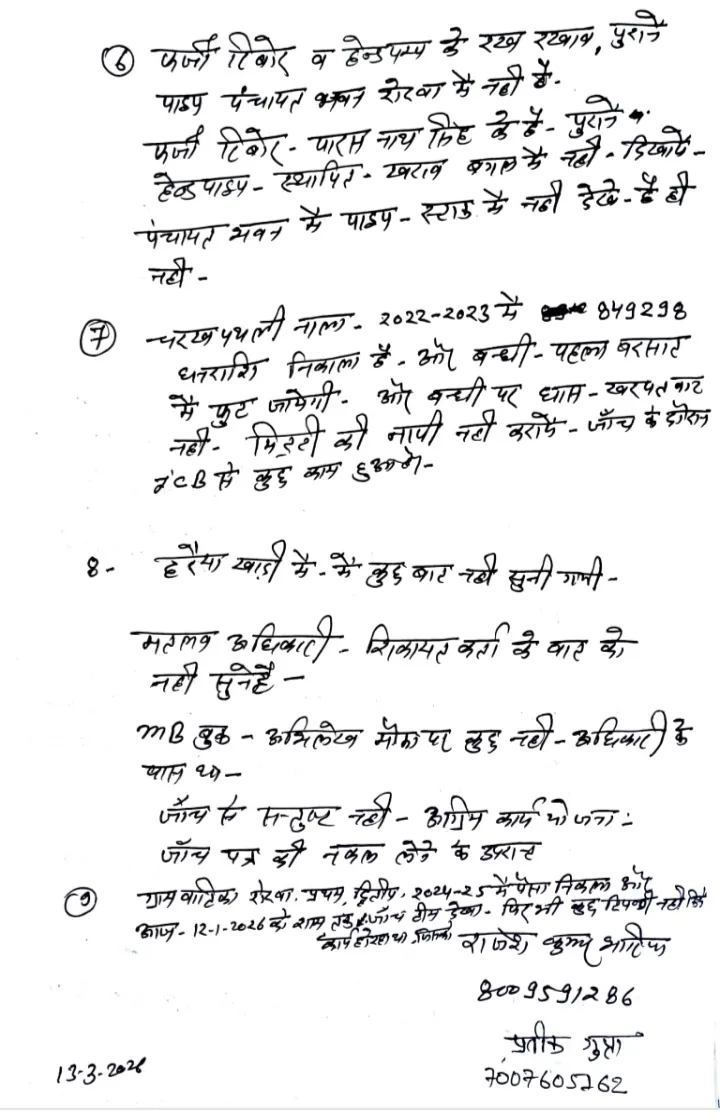 ⑥ फर्जी रिबोर व हैन्डपम्प के रख रखाव, पुराने
पाइप पंचायत भवन शेरवा मे नही है.
फर्जी रिबोर - पारस नाथ सिंह के है - पुराने
हेन्ड पाइप - स्थापित - खराब में नही - दिखाये -
पंचायत भवन मे पाइप - स्टाक मे नही देखे - है ही
नही -
⑦ चरखपथली नाला - 2022-2023 मे 849298
धनराशि निकाला है - और बन्धी - पहला बरसात
मे फुट जायेगी - और बन्धी पर घास - खरपतवार
नही - मिट्टी की नापी नही कराये - जाँच के दौरान
JCB से कुछ काम हुआ है -
8- हरैया खाड़ी मे - मै कुछ बात नही सुनी गयी -
मतलब अधिकारी - शिकायत कर्ता के बात को
नही सुने है -
MB बुक - अभिलेख मौका पर कुछ नही - अधिकारी के
पास था -
जाँच से सन्तुष्ट नही - अग्रिम कार्य योजना :
जाँच पत्र की नकल लेने के उपरान्त
⑨ ग्राम वाटिका शेरवा. प्रथम, द्वितीय, 2024-25 मे पैसा निकला और
आज - 12-1-2026 को शाम तक जाँच टीम देखा - फिर भी कुछ टिप्पणी नही कि
कार्य हो रहा था
राजेश कुमार
8009591286
प्रतीक गुप्ता
7007605762
13-3-2026